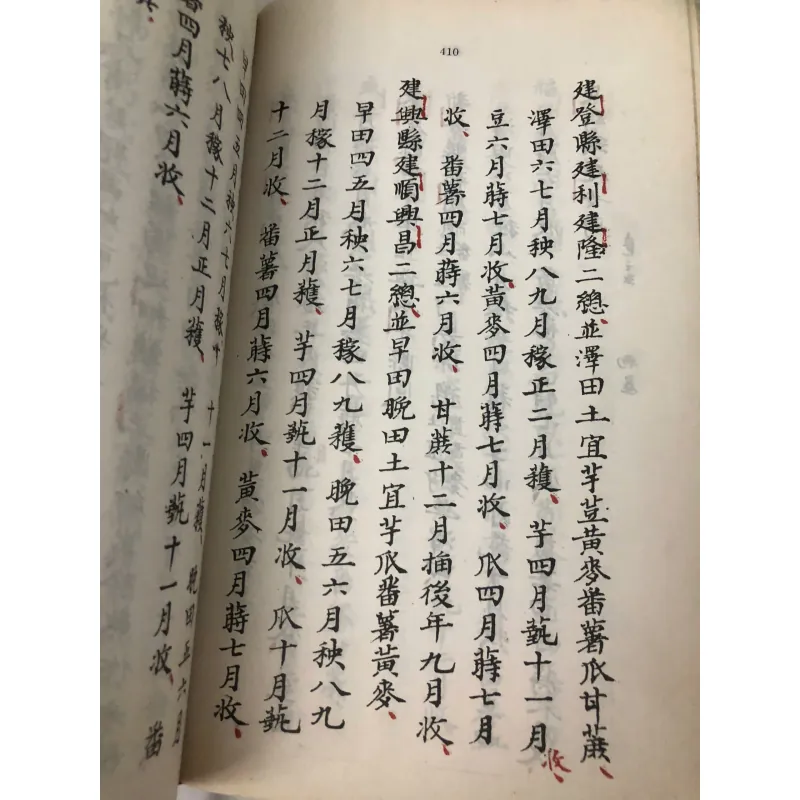 410
建登縣建利建隆二總、並澤田土宜芋荳黃麥番薯瓜甘蔗、
澤田六七月秧八九月稼正二月穫、芋四月蓺十一月收、
豆六月蒔七月收、黃麥四月蒔七月收、瓜四月蒔七月
收、番薯四月蒔六月收、甘蔗十二月插後年九月收、
建興縣建順興昌二總、並早田晚田土宜芋瓜番薯黃麥、
早田四五月秧六七月稼八九穫、晚田五六月秧八九
月稼十二月正月穫、芋四月蓺十一月收、瓜十月蓺
十二月收、番薯四月蒔六月收、黃麥四月蒔七月收、
早田四五月秧六七月稼十
十一月穫、晚田五六月
秧七八月稼十二月正月穫、芋四月蓺十一月收、番
薯四月蒔六月收、